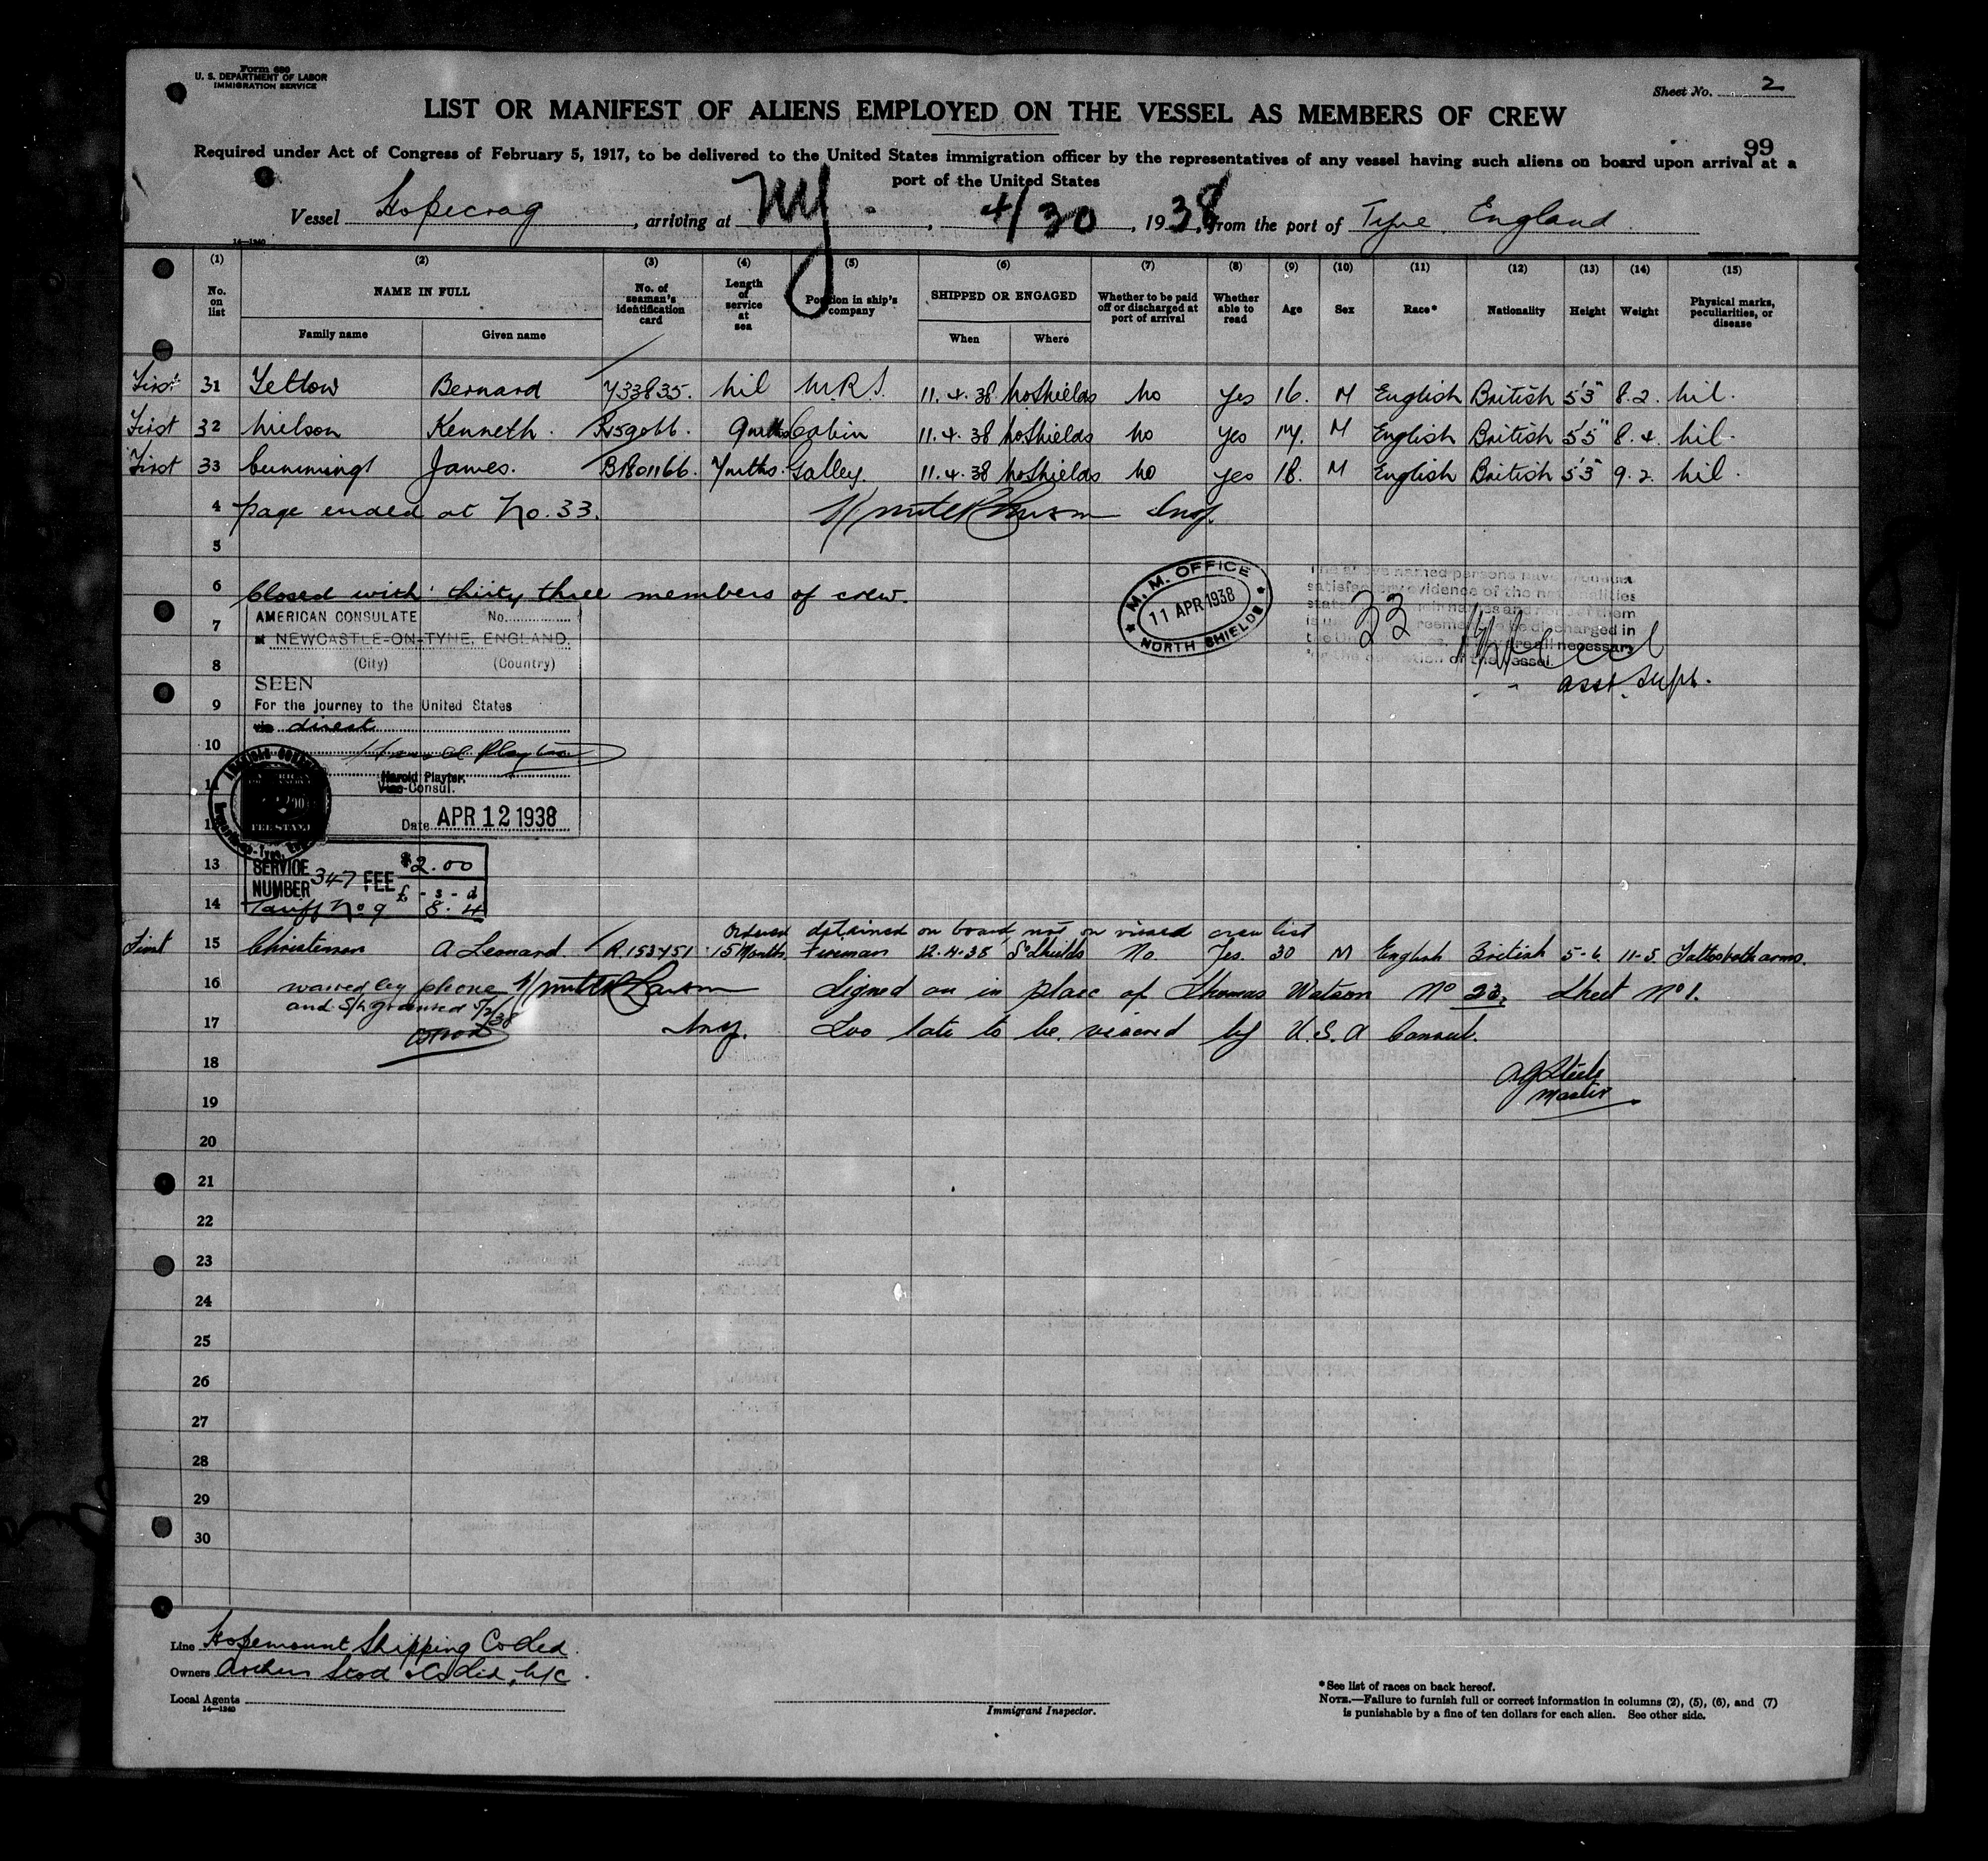 Form 680
U. S. DEPARTMENT OF LABOR
IMMIGRATION SERVICE
Sheet No. 2
LIST OR MANIFEST OF ALIENS EMPLOYED ON THE VESSEL AS MEMBERS OF CREW
99
Required under Act of Congress of February 5, 1917, to be delivered to the United States immigration officer by the representatives of any vessel having such aliens on board upon arrival at a
port of the United States
Vessel Hopecrag, arriving at NY., 4/30, 1938, from the port of Tyne England
14—1240
(1) (2) (3) (4) (5) (6) (7) (8) (9) (10) (11) (12) (13) (14) (15)
No. on list NAME IN FULL No. of seaman's identification card Length of service at sea Position in ship's company SHIPPED OR ENGAGED Whether to be paid off or discharged at port of arrival Whether able to read Age Sex Race* Nationality Height Weight Physical marks, peculiarities, or disease
Family name Given name When Where
First 31 Bernard nil M.R.S. 11.4.38 No Shields No Yes 16. M English British 5'3" 8.2. Nil.
First 32 Nielson Kenneth. 9 mths Cabin 11.4.38 No Shields No Yes M English British 5'5" 8.4. Nil.
First 33 Cummings James. 7 mths. Galley. 11.4.38 No Shields No Yes 18. M English British 5'3" 9.2. Nil.
4 page ended at No. 33. Insp.
5
6 Closed with thirty three members of crew.
M. M. OFFICE
11 APR 1938
NORTH SHIELDS
33
Asst. Supt.
7 AMERICAN CONSULATE No.
at NEWCASTLE-ON-TYNE, ENGLAND.
8 (City) (Country)
SEEN
9 For the journey to the United States
via direct
10
Harold Playter,
11 Vice-Consul.
12 Date APR 12 1938
13 SERVICE NUMBER 347 FEE $2.00
£ - s - d
14 Tariff No 9 8. 4
Ordered detained on board, not on visaed crew list
First 15 Christensen A Leonard. R.153451 15 Months. Fireman 12.4.38 So Shields No. Yes. 30 M English British 5-6. 11-5. Tattoo both arms.
16 waived by phone Signed on in place of Thomas Watson No 23, Sheet No 1.
and granted 5/2/38
17 Insp. Too late to be visaed by U.S.A Consul.
18 Steele
Master
19
20
21
22
23
24
25
26
27
28
29
30
Line Hopemount Shipping Co Ltd.
Owners
Local Agents
14—1240
Immigrant Inspector.
*See list of races on back hereof.
NOTE.—Failure to furnish full or correct information in columns (2), (5), (6), and (7)
is punishable by a fine of ten dollars for each alien. See other side.